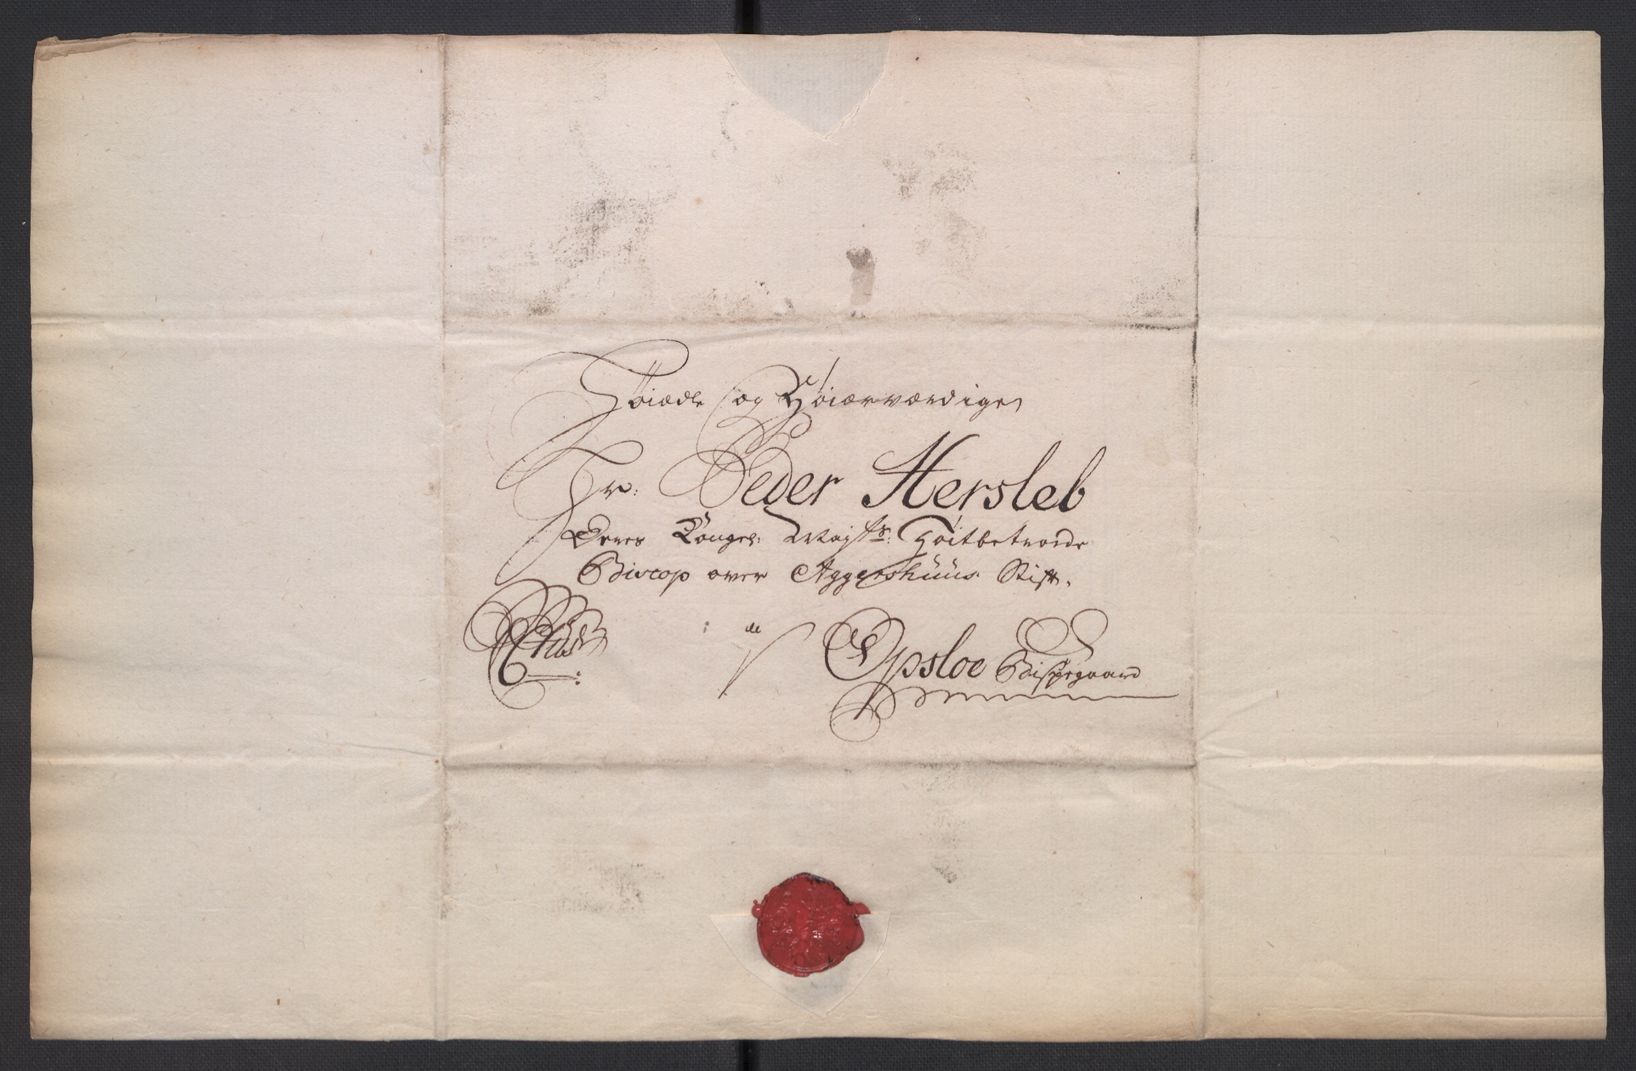 Høiædle og Høiærværdige
Hr: Peder Hersleb
Deres Kongel: Mayts: Høitbetroede
Biscop over Aggershuus Stift.
à
Opsloe Bispegaard